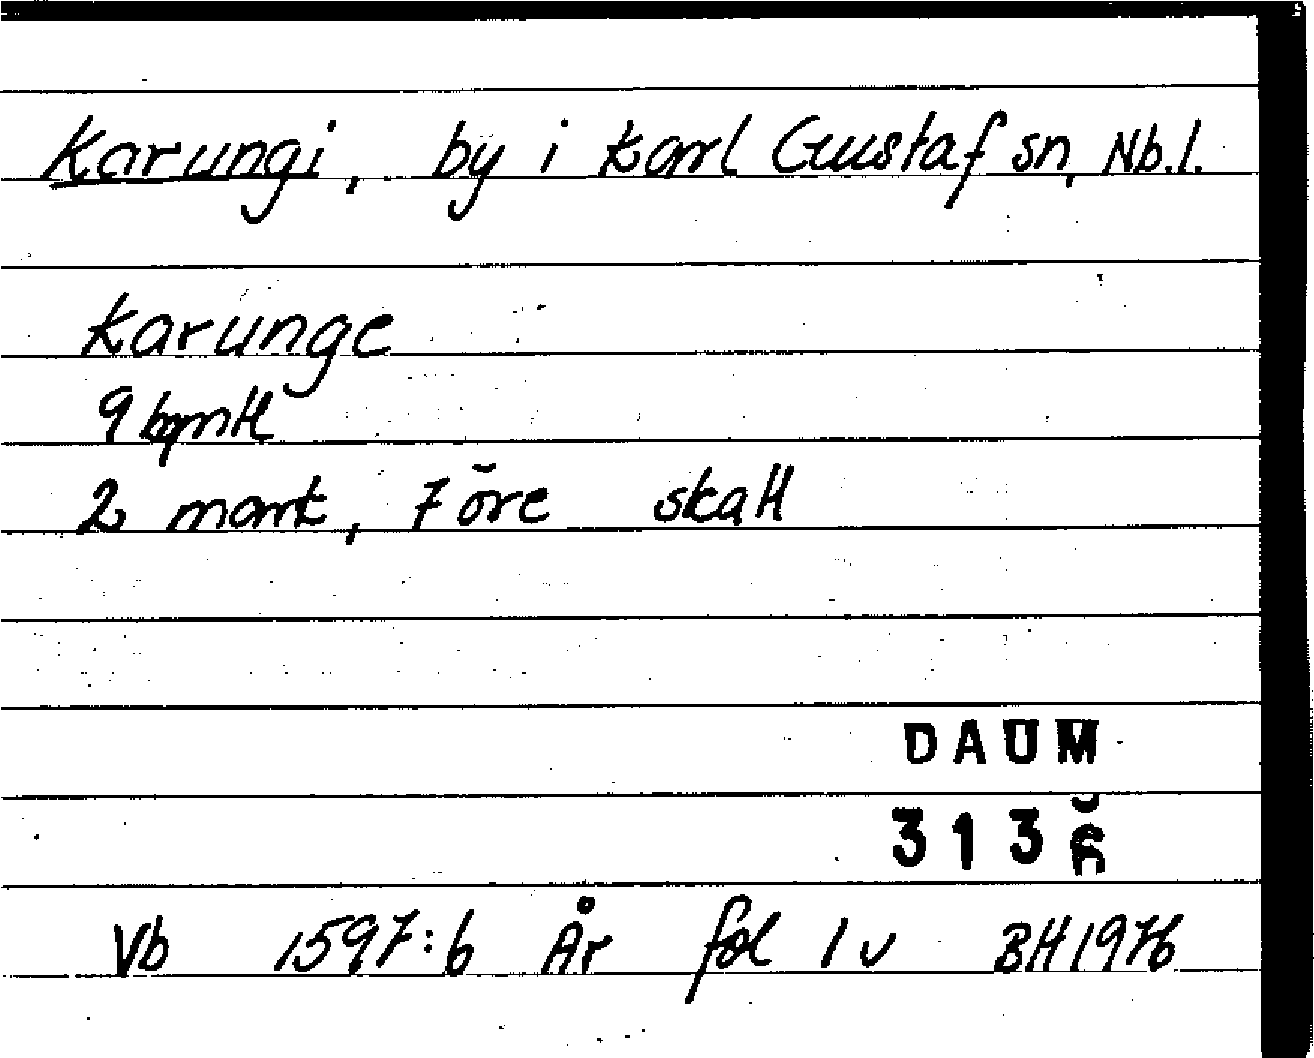 Karungi, by i Karl Gustaf sn, Nb.l.
Karunge
9 bymtl
2 mark, 7 öre skatt
DAUM
313
Vb 1597:6 År fol 1 v BH 1976